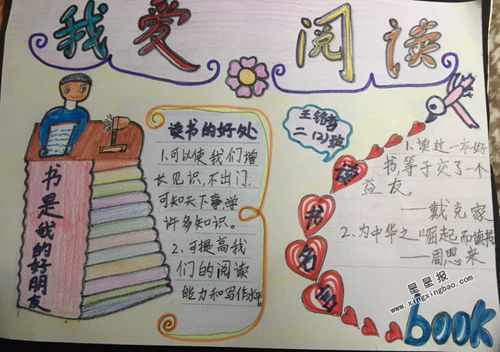 我爱阅读
王锦
二(2)班
书是我的好朋友
读书的好处
1.可以使我们增
长见识,不出门,
可知天下事,学
许多知识。
2.可提高我
们的阅读
能力和写作水平。
读书名句
1.读过一本好
书,等于交了一个
益友。
——戴克家
2、为中华之崛起而读书
——周恩来
book
星星报
www.xingxingbao.com